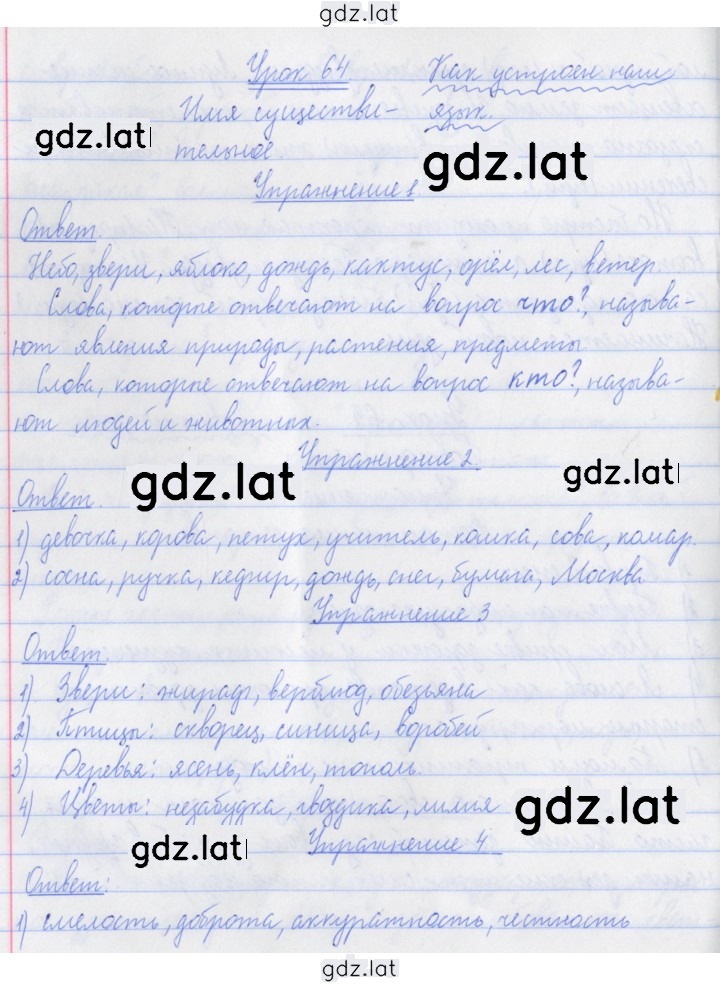 gdz.lat
Урок 64 Как устроен наш
Имя существи- язык.
gdz.lat
тельное gdz.lat
Упражнение 1.
Ответ.
Небо, звери, яблоко, дождь, кактус, орёл, лес, ветер
Слова, которые отвечают на вопрос что?, называ-
ют явления природы, растения, предметы
Слова, которые отвечают на вопрос кто?, называ-
ют людей и животных.
Упражнение 2.
gdz.lat gdz.lat
Ответ.
1) девочка, корова, петух, учитель, кошка, сова, комар.
2) сосна, ручка, кефир, дождь, снег, бумага, Москва
Упражнение 3
Ответ.
1) Звери: жираф, верблюд, обезьяна
2) Птицы: скворец, синица, воробей
3) Деревья: ясень, клён, тополь
4) Цветы: незабудка, гвоздика, лилия
gdz.lat
gdz.lat Упражнение 4.
Ответ:
1) смелость, доброта, аккуратность, честность
gdz.lat